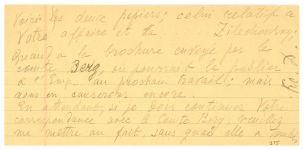 Voici les deux papiers; celui relatif a
Votre affaire et the Zilochovsky;
Quand a le brochure envoyé par le
comte Berg, on pourrait la publier
a l' Imp. au prochain travail; mais
nous en causerons encore.
En attendant, si je dois continuer Votre
correspondance avec le Comte Berg, veuillez
me mettre au fait, sans quoi elle a